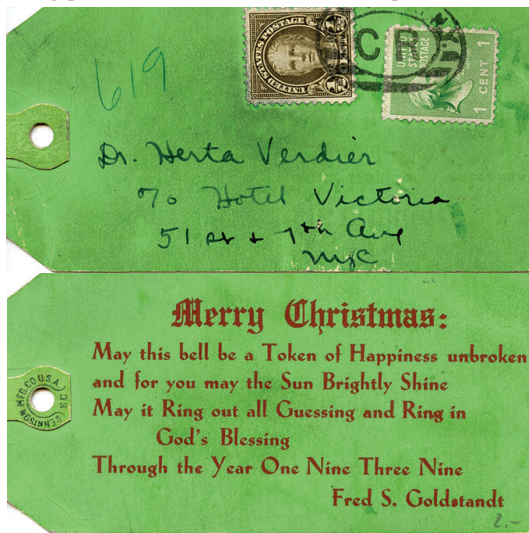 619
UNITED STATES POSTAGE
UNITED STATES POSTAGE
1 CENT 1
Dr. Herta Verdier
c/o Hotel Victoria
51 st + 7th Ave
NYC
Merry Christmas:
May this bell be a Token of Happiness unbroken
and for you may the Sun Brightly Shine
May it Ring out all Guessing and Ring in
God's Blessing
Through the Year One Nine Three Nine
Fred S. Goldstandt
DENNISON MFG.CO U.S.A.
2.-